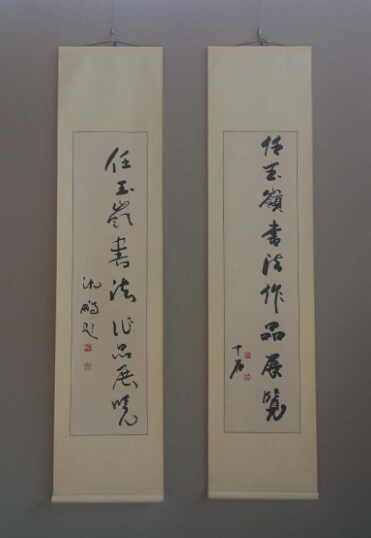 任玉嶺書法作品展覽
千石
任玉嶺書法作品展覽
沈鵬題